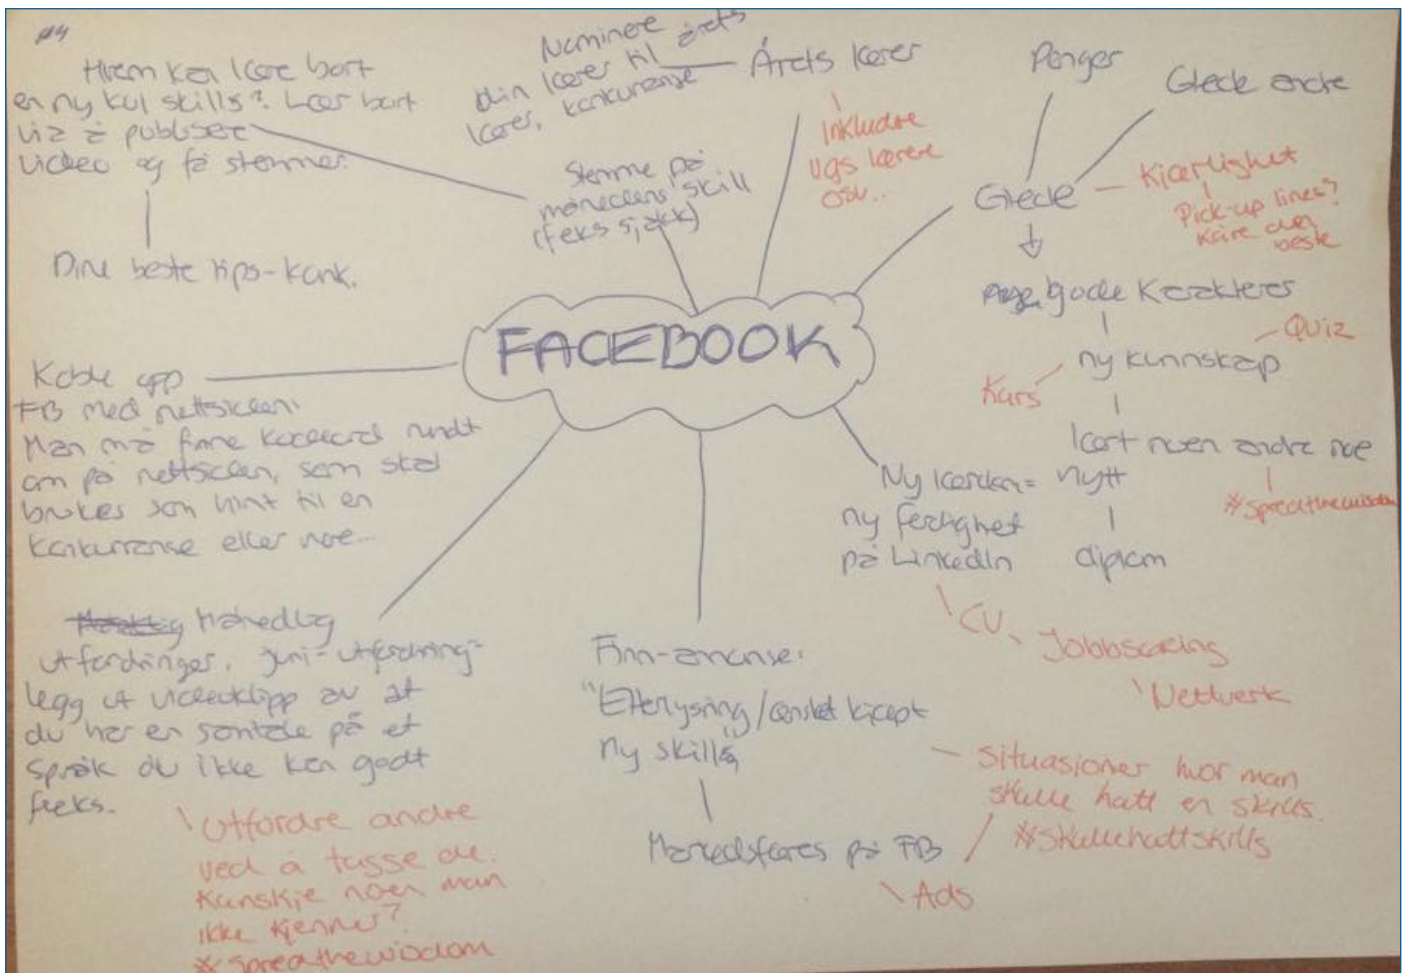 #4
Hvem kan lære bort
en ny kul skills? Lær bort
via å publisere
video og få stemmer.
Dine beste tips-konk.
Nominere
din lærer til årets
lærer, konkurranse
Årets lærer
Inkludre
vgs lærere
osv..
Stemme på
månedens skill
(feks sjakk)
Penger
Glede andre
Glede
Kjærlighet
Pick-up lines?
Kåre den
beste
gode karakterer
ny kunnskap
Quiz
Kurs
lært noen andre noe
#spreathewisdom
nytt
diplom
FACEBOOK
Koble opp
FB med nettsiden:
Man må finne kodeord rundt
om på nettsiden, som skal
brukes som hint til en
konkurranse eller noe...
Ny lærdom=
ny ferdighet
på LinkedIn
CV
Jobbsøking
Nettverk
Månedlig
utfordringer. Juni-utfordring-
legg ut videoklipp av at
du har en samtale på et
språk du ikke kan godt
feks.
Utfordre andre
ved å tagge de.
Kanskje noen man
ikke kjenner?
#spreathewisdom
Finn-annonse:
"Etterlysning/ønsket kjøpt
ny skills"
Markedsføres på FB
Ads
situasjoner hvor man
skulle hatt en skills.
#Skullehattskills